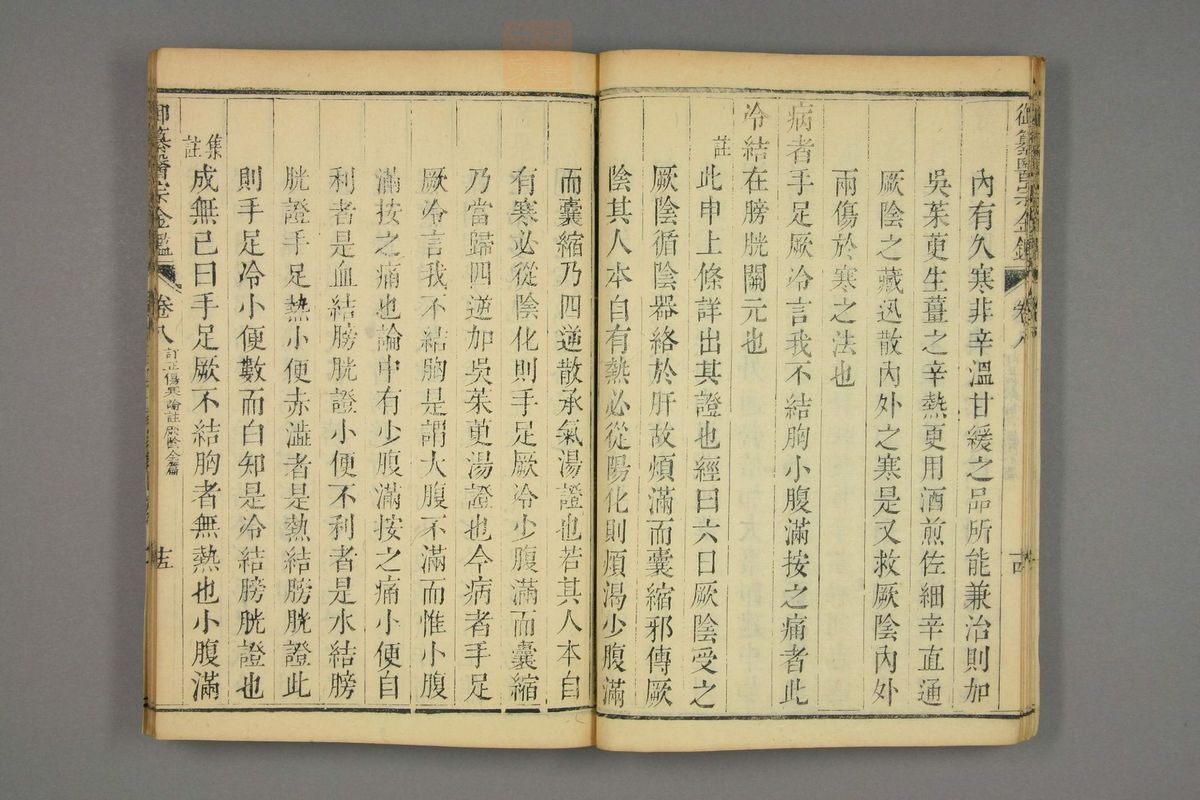 御纂醫宗金鑑
卷八
內有久寒非辛溫甘緩之品所能兼治則加
吳茱萸生薑之辛熱更用酒煎佐細辛直通
厥陰之藏迅散內外之寒是又救厥陰內外
兩傷於寒之法也
病者手足厥冷言我不結胸小腹滿按之痛者此
冷結在膀胱關元也
註
此申上條詳出其證也經曰六日厥陰受之
厥陰循陰器絡於肝故煩滿而囊縮邪傳厥
陰其人本自有熱必從陽化則煩渴少腹滿
而囊縮乃四逆散承氣湯證也若其人本自
有寒必從陰化則手足厥冷少腹滿而囊縮
乃當歸四逆加吳茱萸湯證也今病者手足
厥冷言我不結胸是謂大腹不滿而惟小腹
滿按之痛也論中有少腹滿按之痛小便自
利者是血結膀胱證小便不利者是水結膀
胱證手足熱小便赤澁者是熱結膀胱證此
則手足冷小便數而白知是冷結膀胱證也
集註
成無已曰手足厥不結胸者無熱也小腹滿
御纂醫宗金鑑
卷八
訂正傷寒論註厥陰全篇
十五